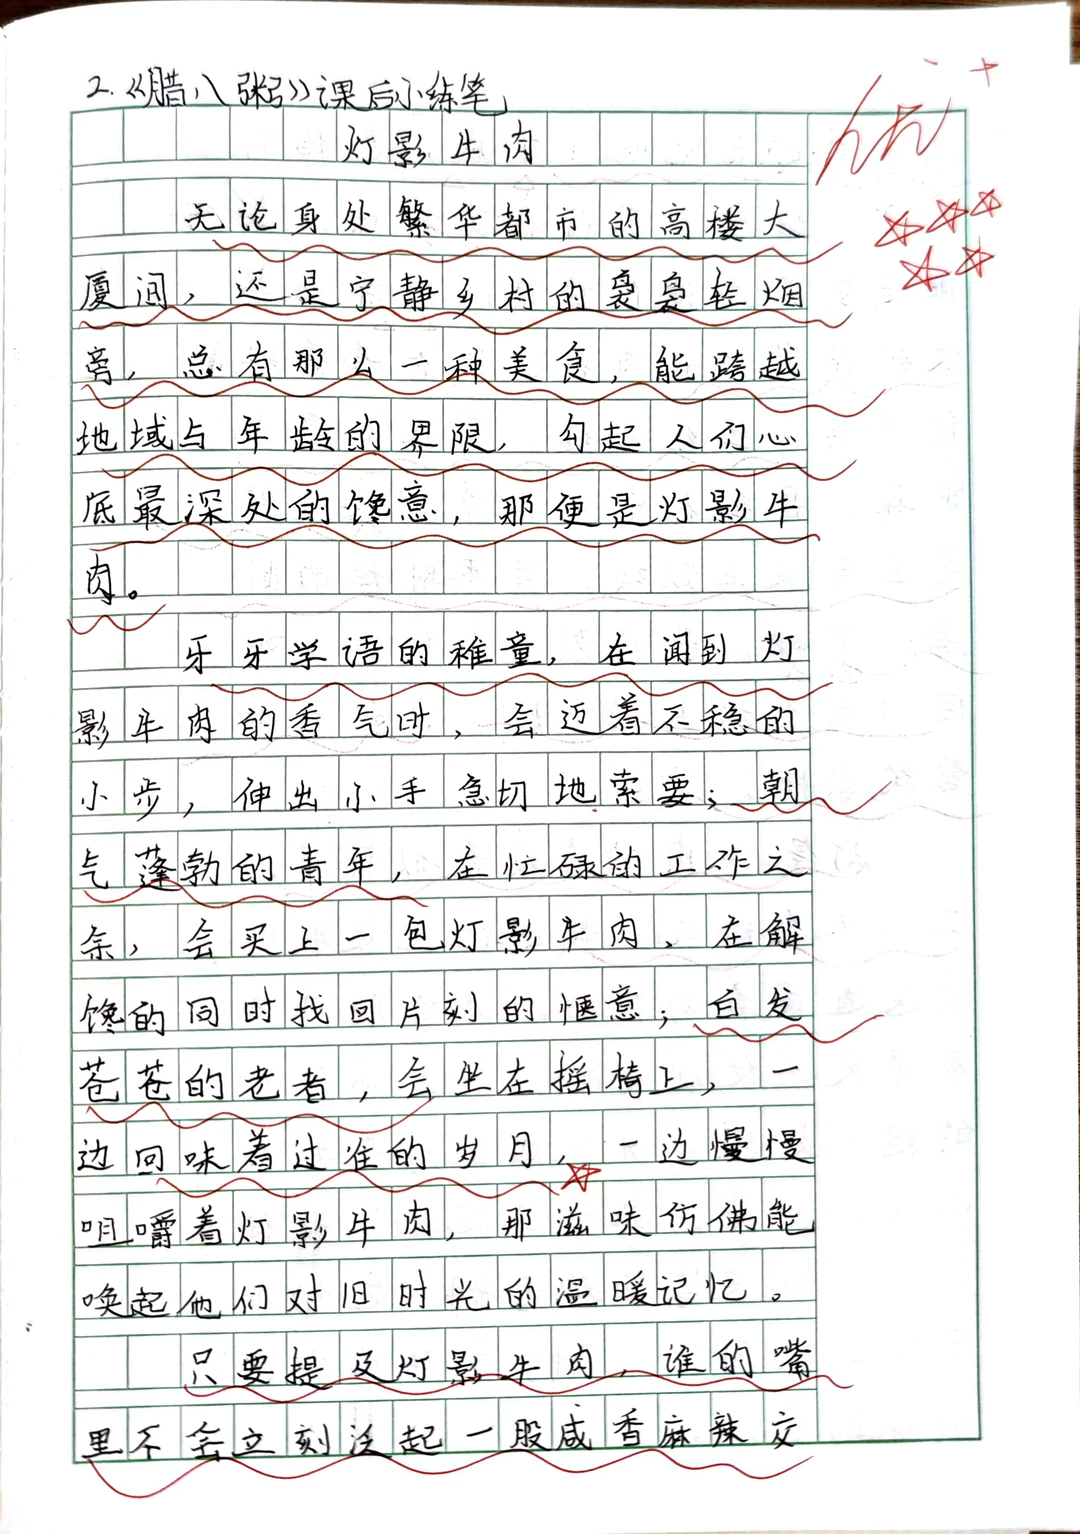 2.《腊八粥》课后小练笔
优+
灯影牛肉
无论身处繁华都市的高楼大
厦间，还是宁静乡村的袅袅轻烟
旁，总有那么一种美食，能跨越
地域与年龄的界限，勾起人们心
底最深处的馋意，那便是灯影牛
肉。
牙牙学语的稚童，在闻到灯
影牛肉的香气时，会迈着不稳的
小步，伸出小手急切地索要；朝
气蓬勃的青年，在忙碌的工作之
余，会买上一包灯影牛肉，在解
馋的同时找回片刻的惬意；白发
苍苍的老者，会坐在摇椅上，一
边回味着过往的岁月，一边慢慢
咀嚼着灯影牛肉，那滋味仿佛能
唤起他们对旧时光的温暖记忆。
只要提及灯影牛肉，谁的嘴
里不会立刻泛起一股咸香麻辣交